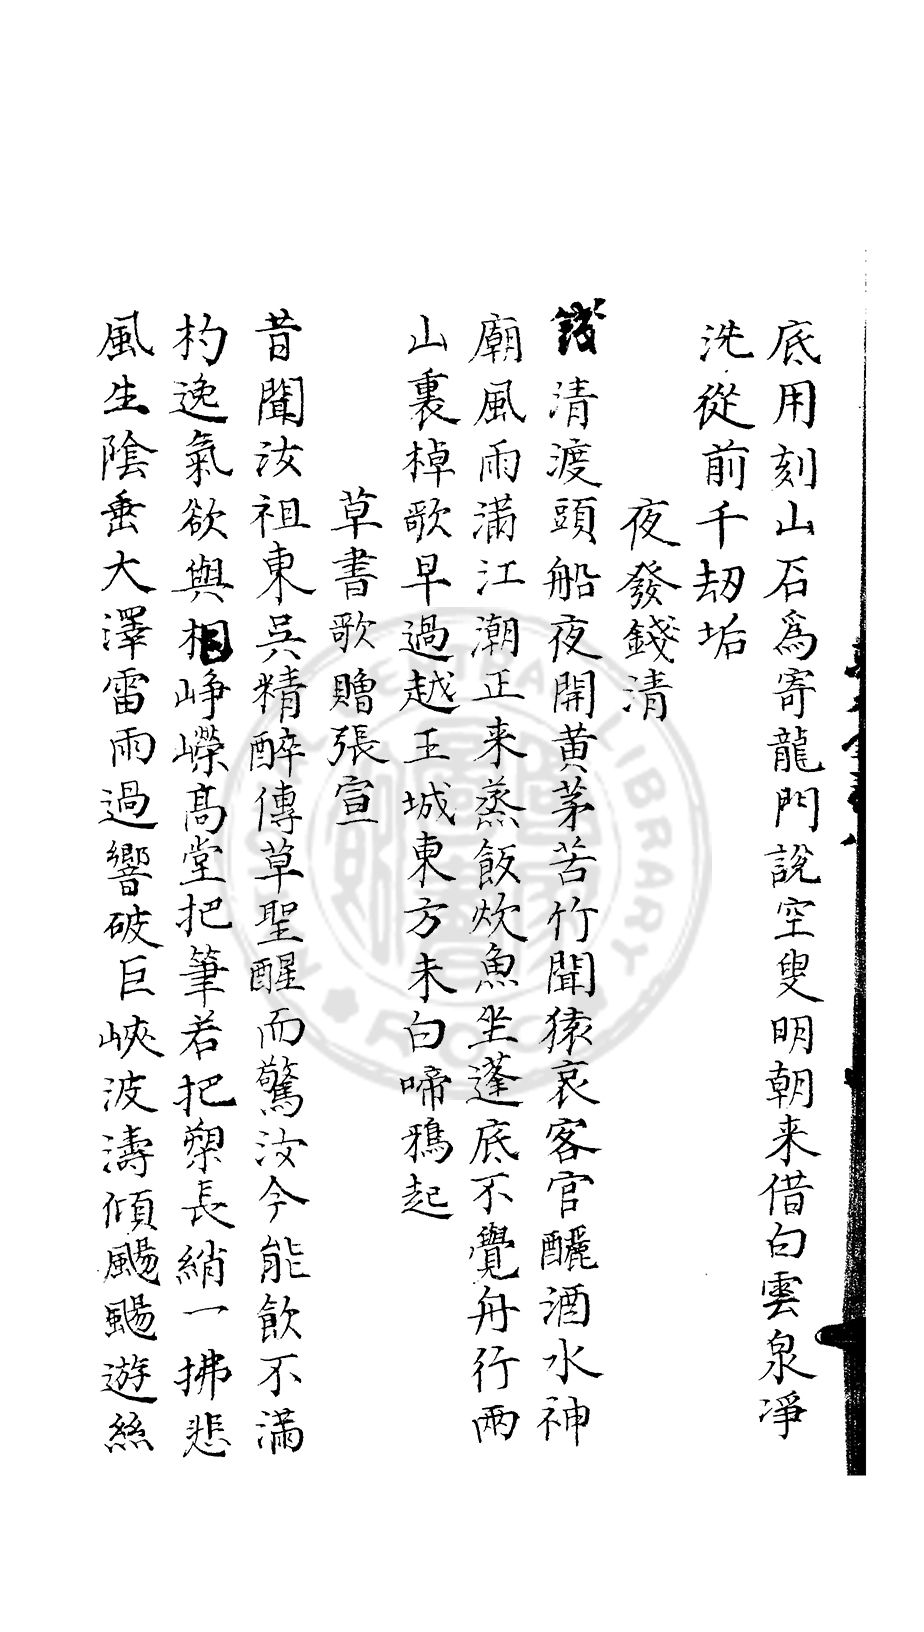 底用刻山石為寄龍門説空叟明朝来借白雲泉凈
洗從前千刼垢
夜發錢清
錢清渡頭船夜開黄茅苦竹聞猿哀客官釃酒水神
廟風雨滿江潮正来蒸飯炊魚坐蓬底不覺舟行兩
山裏棹歌早過越王城東方未白啼鴉起
草書歌贈張宣
昔聞汝祖東吳精醉傳草聖醒而驚汝今能飲不滿
杓逸氣欲與相崢嶸髙堂把筆若把槊長綃一拂悲
風生陰垂大澤雷雨過響破巨峽波濤傾颺颺遊絲
CENTRAL LIBRARY